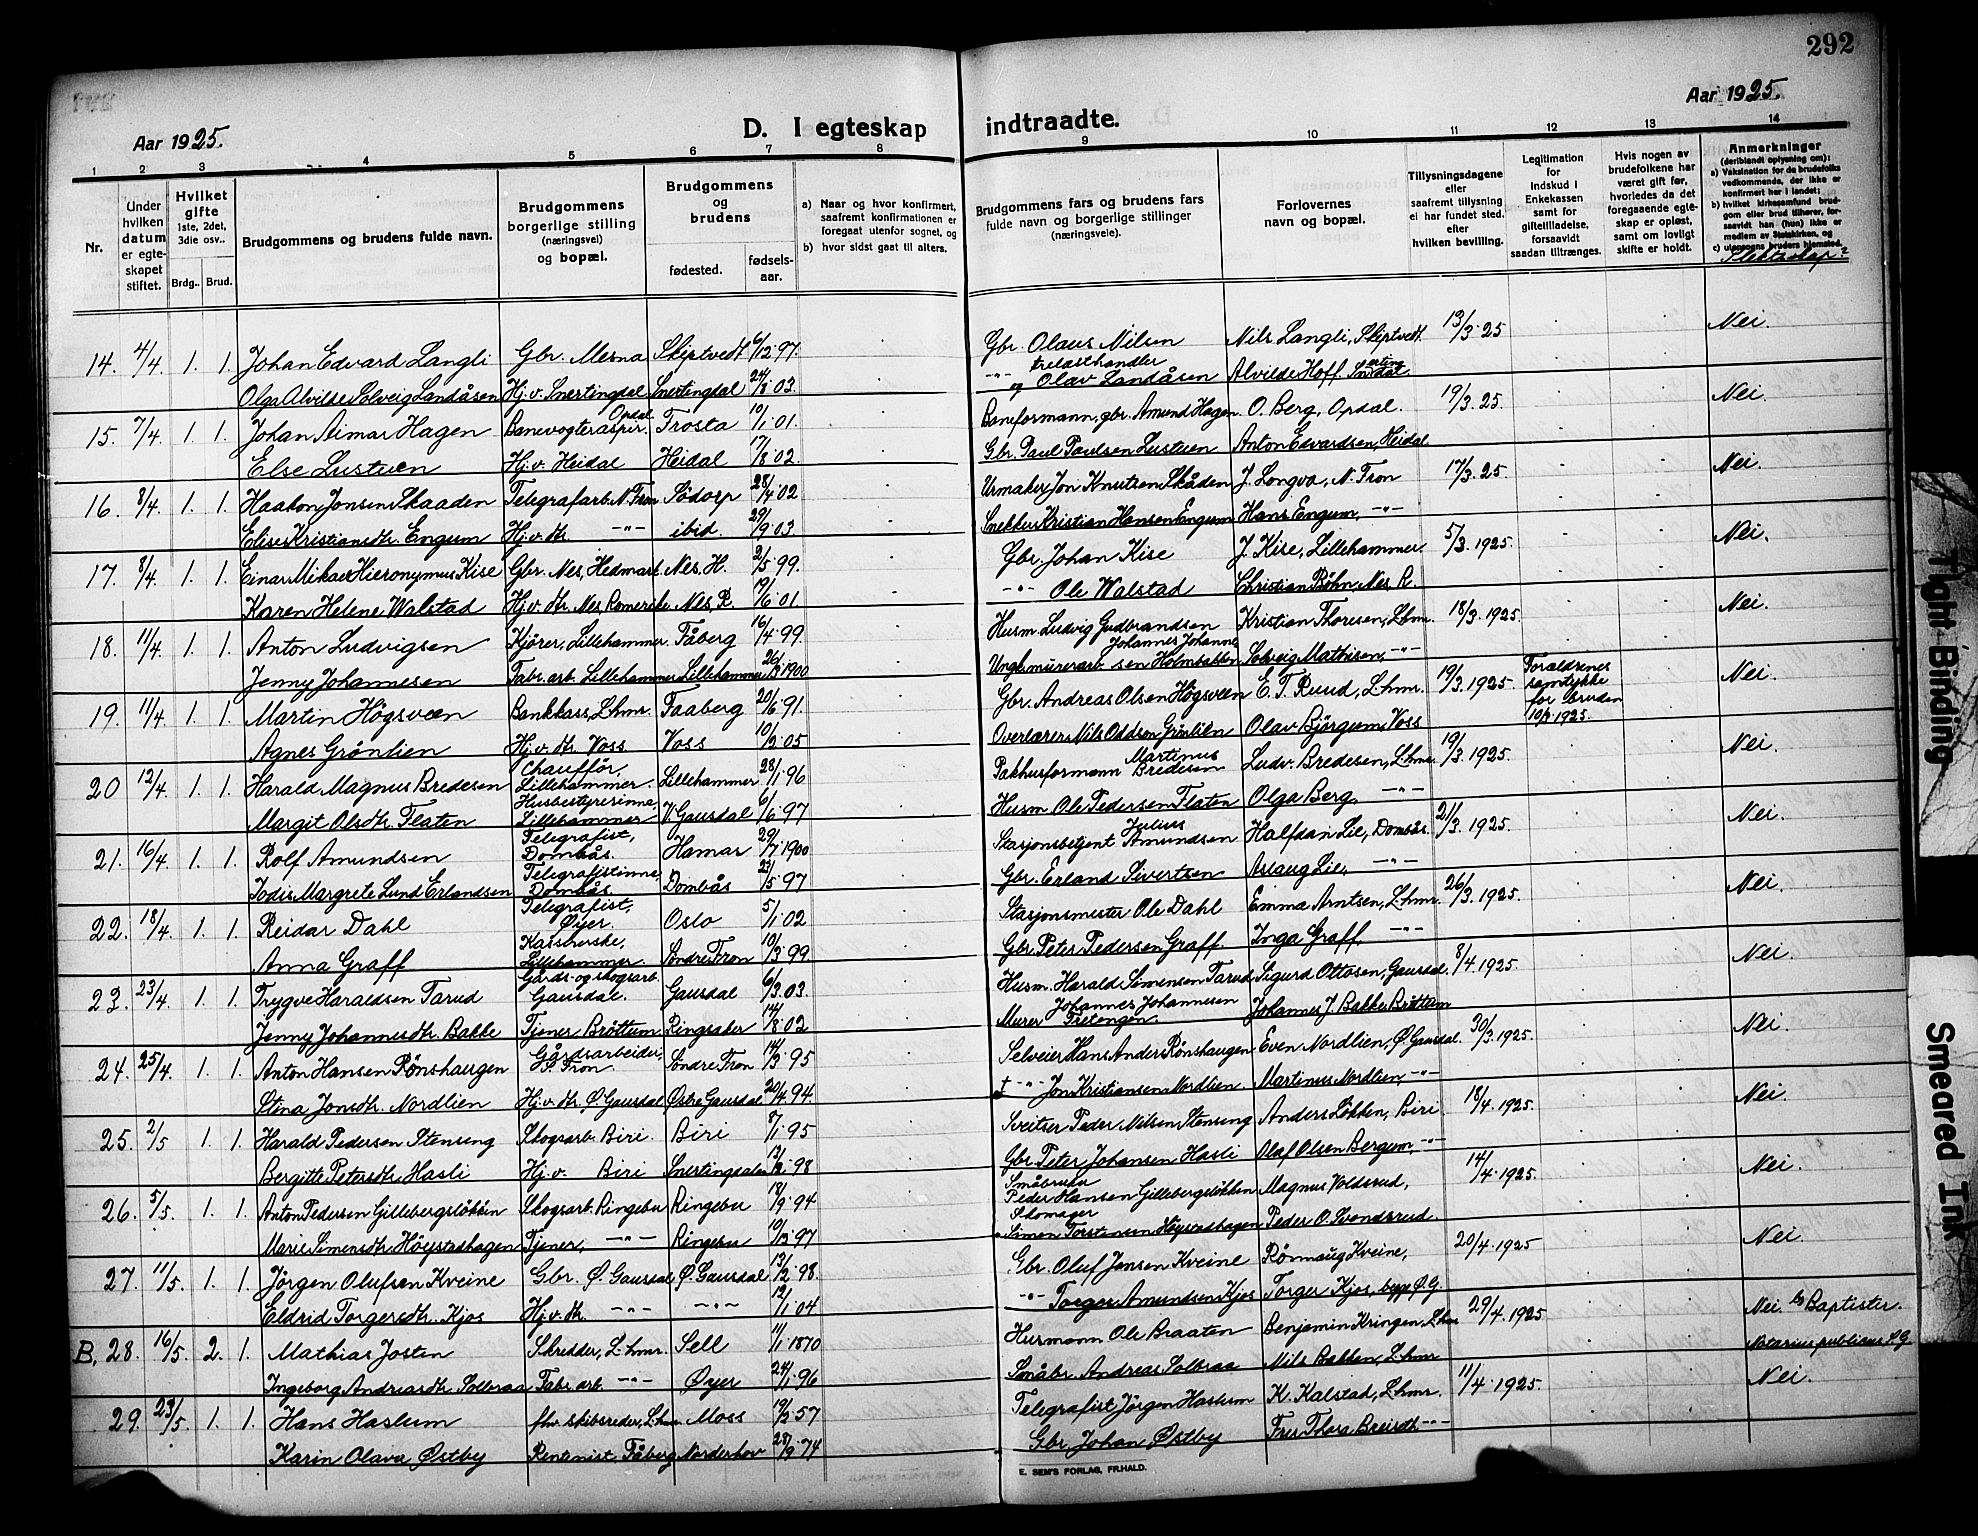 292
Aar 1925.
D. I egteskap indtraadte.
Aar 1925.
1 2 3 4 5 6 7 8 9 10 11 12 13 14
Nr.
Under hvilken datum er egteskapet stiftet.
Hvilket gifte 1ste, 2det, 3die osv..
Brdg.. Brud.
Brudgommens og brudens fulde navn.
Brudgommens borgerlige stilling (næringsvei) og bopæl.
Brudgommens og brudens
fødested. fødselsaar.
a) Naar og hvor konfirmert, saafremt konfirmationen er foregaat utenfor sognet, og
b) hvor sidst gaat til alters.
Brudgommens fars og brudens fars fulde navn og borgerlige stillinger (næringsveie).
Forlovernes navn og bopæl.
Tillysningsdagene eller saafremt tillysning ei har fundet sted. efter hvilken bevilling.
Legitimation for Indskud i Enkekassen samt for giftetilladelse, forsaavidt saadan tiltrænges.
Hvis nogen av brudefolkene har været gift før, hvorledes da det foregaaende egteskap er opløst, samt om lovligt skifte er holdt.
Anmerkninger
(deriblandt oplysning om):
a) Vaksination for de brudefolks vedkommende, der ikke er konfirmert her i landet;
b) hvilket kirkesamfund brudgom eller brud tilhører, forsaavidt han (hun) ikke er medlem av Statskirken, og
c) utensogns bruders hjemsted.
Slektskap?
14. 4/4. 1. 1. Johan Edvard Langli Gbr. Mesna Skiptvedt 6/12.97. Gbr. Olaus Nilsen Nils Langli, Skiptvedt. 13/3.25 Nei.
Olga Alvilde Solveig Landåsen Hj.v. Snertingdal Snertingdal 24/8.03. -"- og trelasthandler Olav Landåsen Alvilde Hoff Snertingdal.
15. 7/4. 1. 1. Johan Aimar Hagen Banevogteraspir. Opdal Frosta 10/1.01. Baneformann, gbr. Amund Hagen O. Berg, Opdal. 19/3.25. Nei.
Else Lustuen Hj.v. Heidal Heidal 17/8.02. Gbr. Paul Paulsen Lustuen Anton Edvardsen, Heidal
16. 8/4. 1. 1. Haakon Jonsen Skaaden Telegrafarb. N. Fron Sødorp 28/4.02 Urmaker Jon Knutsen Skåden J. Longva, N. Fron 17/3.25 Nei.
Elise Kristiansdtr. Engum Hj.v. dtr. -"- ibid. 29/9.03. Snekker Kristian Hansen Engum Hans Engum, -"-
17. 8/4. 1. 1. Einar Mikael Hieronymus Kise Gbr. Nes, Hedmark Nes, H. 2/5.99. Gbr. Johan Kise J. Kise, Lillehammer. 5/3.1925. Nei.
Karen Helene Walstad Hj.v. dtr. Nes, Romerike Nes, R. 19/6.01 -"- Ole Walstad Christian Røhn, Nes, R.
18. 11/4. 1. 1. Anton Ludvigsen Kjører, Lillehammer Fåberg 16/4.99. Husm. Ludvig Gudbrandsen Kristian Thoresen, Lhmr. 18/3.1925. Nei.
Jenny Johannesen Fabr. arb. Lillehammer Lillehammer 26/3.1900 Johannes Johannesen Holmbakken Solveig Mathisen, -"-
19. 11/4. 1. 1. Martin Högsveen Bankkass, Lhmr. Faaberg 20/6.91. Gbr. Andreas Olsen Högsveen E. T. Ruud, Lhmr. 19/3.1925. Forældrenes samtykke for bruden 10/3 1925. Nei.
Agnes Gröntien Hj.v. dtr. Voss Voss 10/2.05 Overlærer Nils Oddson Grönlien Olav Bjørgum, Voss
20 12/4. 1. 1. Harald Magnus Bredesen Chaufför, Lillehammer. Lillehammer 28/1.96 Pakhusformann Martinus Bredesen Ludv. Bredesen, Lhmr. 19/3.1925. Nei.
Margit Olsdtr. Flaten Husbestyrerinne, Lillehammer V. Gausdal 6/6.97 Husm. Ole Pedersen Flaten Olga Berg, -"-
21. 16/4. 1. 1. Rolf Amundsen Telegrafist, Dombås. Hamar 29/7.1900 Stasjonsbetjent Julius Amundsen Halfdan Lie, Dombås. 21/3.1925. Nei.
Jodis Margrete Lund Erlandsen Telegrafistinne, Dombås Dombås 23/5.97 Gbr. Erland Sivertsen Aslaug Lie, -"-
22. 18/4. 1. 1. Reidar Dahl Telegrafist, Øyer. Oslo 5/1.02 Stasjonsmester Ole Dahl Emma Arntsen, Lhmr. 26/3.1925. Nei.
Anna Graff Kassererske, Lillehammer Søndre Fron 10/3.99 Gbr. Peter Pedersen Graff. Inga Graff, -"-
23. 23/4. 1. 1. Trygve Haraldsen Tarud Gårds- og skogsarb. Gausdal. Gausdal 6/3.03. Husm. Harald Simensen Tarud Sigurd Ottosen, Gausdal. 8/4.1925. Nei.
Jenny Johannesdtr. Bakke Tjener Brøttum Ringsaker 14/8.02 Murer Johannes Johannesen Tretengen. Johannes J. Bakke Brøttum
24. 25/4. 1. 1. Anton Hansen Rönshaugen Gårdsarbeider, S. Fron. Søndre Fron 14/3.95 Selveier Hans Anders Rönshaugen Even Nordlien, Ø. Gausdal. 30/3.1925. Nei.
Stina Jonsdtr. Nordlien Hj.v. dtr. Ø. Gausdal Østre Gausdal 20/4.94. † -"- Jon Kristiansen Nordlien. Martinus Nordlien, -"-
25. 2/5 1. 1. Harald Pedersen Stenseng Skogsarb. Biri. Biri 8/1.95 Sveitser Peder Nilsen Stenseng Anders Løkken, Biri 18/4.1925. Nei.
Bergitte Petersdtr. Hasli Hj.v. Biri Snertingdalen 12/12.98 Gbr. Peter Johansen Hasli Olaf Olsen Bergum, -"-
26. 5/5. 1. 1. Anton Pedersen Gillebergsløkken Skogsarb. Ringebu Ringebu 18/9.94 Småbruker Peder Hansen Gillebergsløkken Magnus Voldsrud, 14/4.1925. Nei.
Marie Simensdtr. Høystadhagen Tjener, -"- Ringebu 10/12.97 Skomager Simen Torstensen Høystadhagen Peder O. Svendsrud.
27. 11/5. 1. 1. Jörgen Olufsen Kveine Gbr. Ø. Gausdal Ø. Gausdal 13/2.98. Gbr. Oluf Jensen Kveine Rönnaug Kveine, 20/4.1925 Nei.
Eldrid Torgersdtr. Kjos Hj.v. dtr. -"- -"- 12/1.04 -"- Torger Amundsen Kjos Torger Kjos, begge Ø. G.
B. 28. 16/5. 2. 1. Mathias Josten Skredder, L.hmr. Sell 11/1.1870 Husmann Ole Braaten Benjamin Kringen, Lhmr 29/4.1925 Nei. b) Baptister.
Ingeborg Andreasdtr. Solbraa Fabr. arb. -"- Øyer 24/1.96 Småbr. Andreas Solbraa Nils Bakken, L.hmr Notarius publicus
29. 23/5. 1. 1. Hans Haslum fhv. skibsreder, Lhmr. Moss 19/2.57 Telegrafist Jörgen Haslum K. Kalstad, Lhmr. 11/4.1925. Nei.
Karin Olava Østby Rentenist, Fåberg Norderhov 28/9.74 Gbr. Johan Østby Frk. Thora -"-
E. SEM'S FORLAG, FR.HALD.
Tight Binding
Smeared Ink